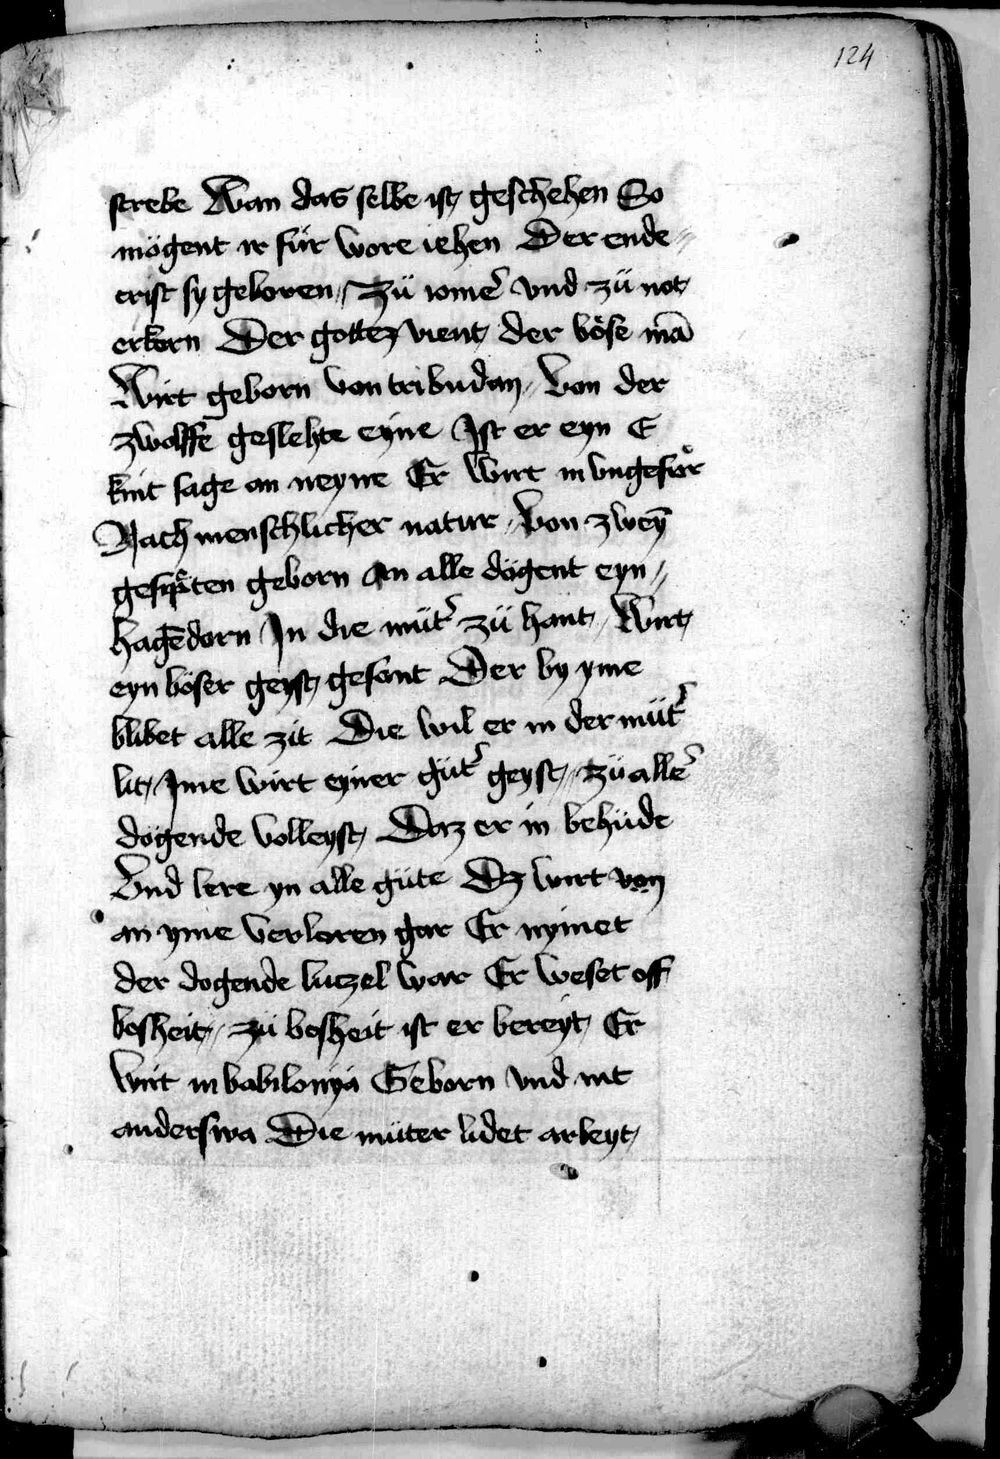 124
strebe Wan das selbe ist geschehen So
mögent ir für wore iehen Der ende⸗
crist sy geboren / Zü iomeʼ vnd zü not
erkorn Der gottez vient der böse mā
Wirt geborn von tribu dan / Von der
zwolffē geslehte eyne Ist er eyn E
kint sage an neyne Er wirt in vngefüͦr
Nach menschlicher natur / Von zweȳ
geborn An alle dögent eyn⸗
hagēdorn In die mütʼ zü hant / Wirt
eyn böser geyst gesant Der by yme
blibet alle zit Die wil er in der mütʼ
lit / Ime wirt eyner gütʼ geyst / zü alleʼ
dögende volleyst Daz er in behüde
Vnd lere yn alle güte Dz wirt von
an yme verloren gar Er nymet
der dogende lutzel war Er weset off
bosheit / zü bosheit ist er bereyt Er
wirt in babilonya Geborn vnd nit
anderswa Die müter lidet arbeyt